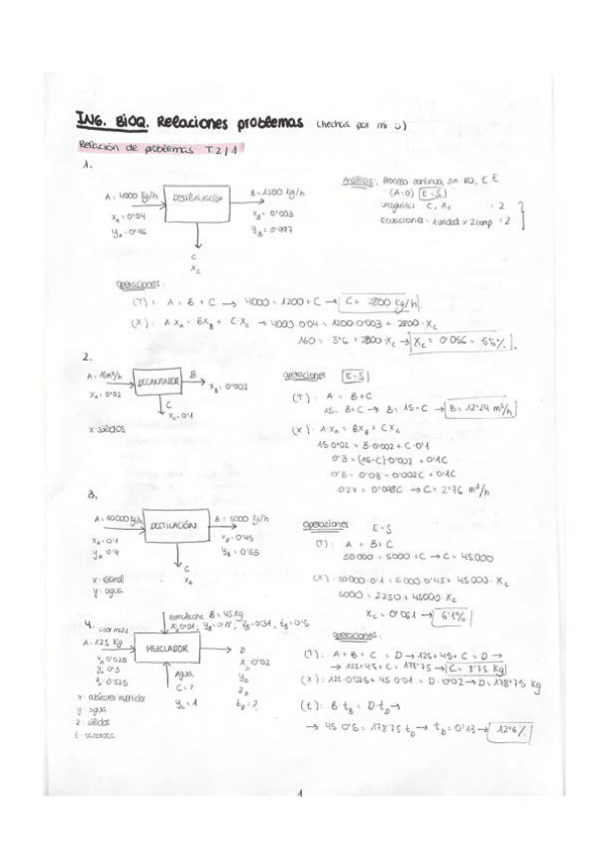 ING. BIOQ. Relaciones problemas (hechas por mi :)
Relación de problemas T.2/1
1.
A = 4000 kg/h
x_A = 0'04
y_A = 0'96
DESTILACIÓN
B = 1200 kg/h
x_B = 0'003
y_B = 0'997
C
x_C
Análisis: Proceso continuo, sin RQ, E.E
(A=0) E=S
Incógnitas C, x_C = 2
Ecuaciones = 1 unidad x 2 comp = 2
operaciones:
(T): A = B + C → 4000 = 1200 + C → C = 2800 kg/h
(X): A·x_A = B·x_B + C·x_C → 4000·0'04 = 1200·0'003 + 2800·x_C
160 = 3'6 + 2800·x_C → x_C = 0'056 = 5'6%
2.
x_A = 0'02
DECANTADOR
B
x_B = 0'002
C
x_C = 0'1
x: sólidos
operaciones E=S
(T): A = B+C
15 = B+C → B = 15-C → B = 12'24 m³/h
(X): A·x_A = B·x_B + C·x_C
15·0'02 = B·0'002 + C·0'1
0'3 = (15-C)·0'002 + 0'1C
0'3 = 0'03 - 0'002C + 0'1C
0'27 = 0'098C → C = 2'76 m³/h
3.
DESTILACIÓN
B = 5000 kg/h
x_A = 0'1
y_A = 0'9
x_B = 0'45
y_B = 0'55
C
x: etanol
y: agua
operaciones E=S
(T): A = B+C
50000 = 5000 + C → C = 45000
(X): 50000·0'1 = 5000·0'45 + 45000·x_C
5000 = 2250 + 45000·x_C
x_C = 0'061 → 6'1%
4.
A = 125 kg
x_A 0'025
z_A 0'825
B = 45 kg
MEZCLADOR
Agua
C = ?
y_C = 1
D
x_D 0'02
y_D
z_D
t_D = ?
y: agua
z: sólidos
t: sacarosa
operaciones:
(T): A + B + C = D → 125 + 45 + C = D →
→ 125 + 45 + C = 178'75 → C = 8'75 kg
(X): 125·0'025 + 45·0'01 = D·0'02 → D = 178'75 kg
(t): B·t_B = D·t_D →
→ 45·0'5 = 178'75·t_D → t_D = 0'13 → 12'6%
1